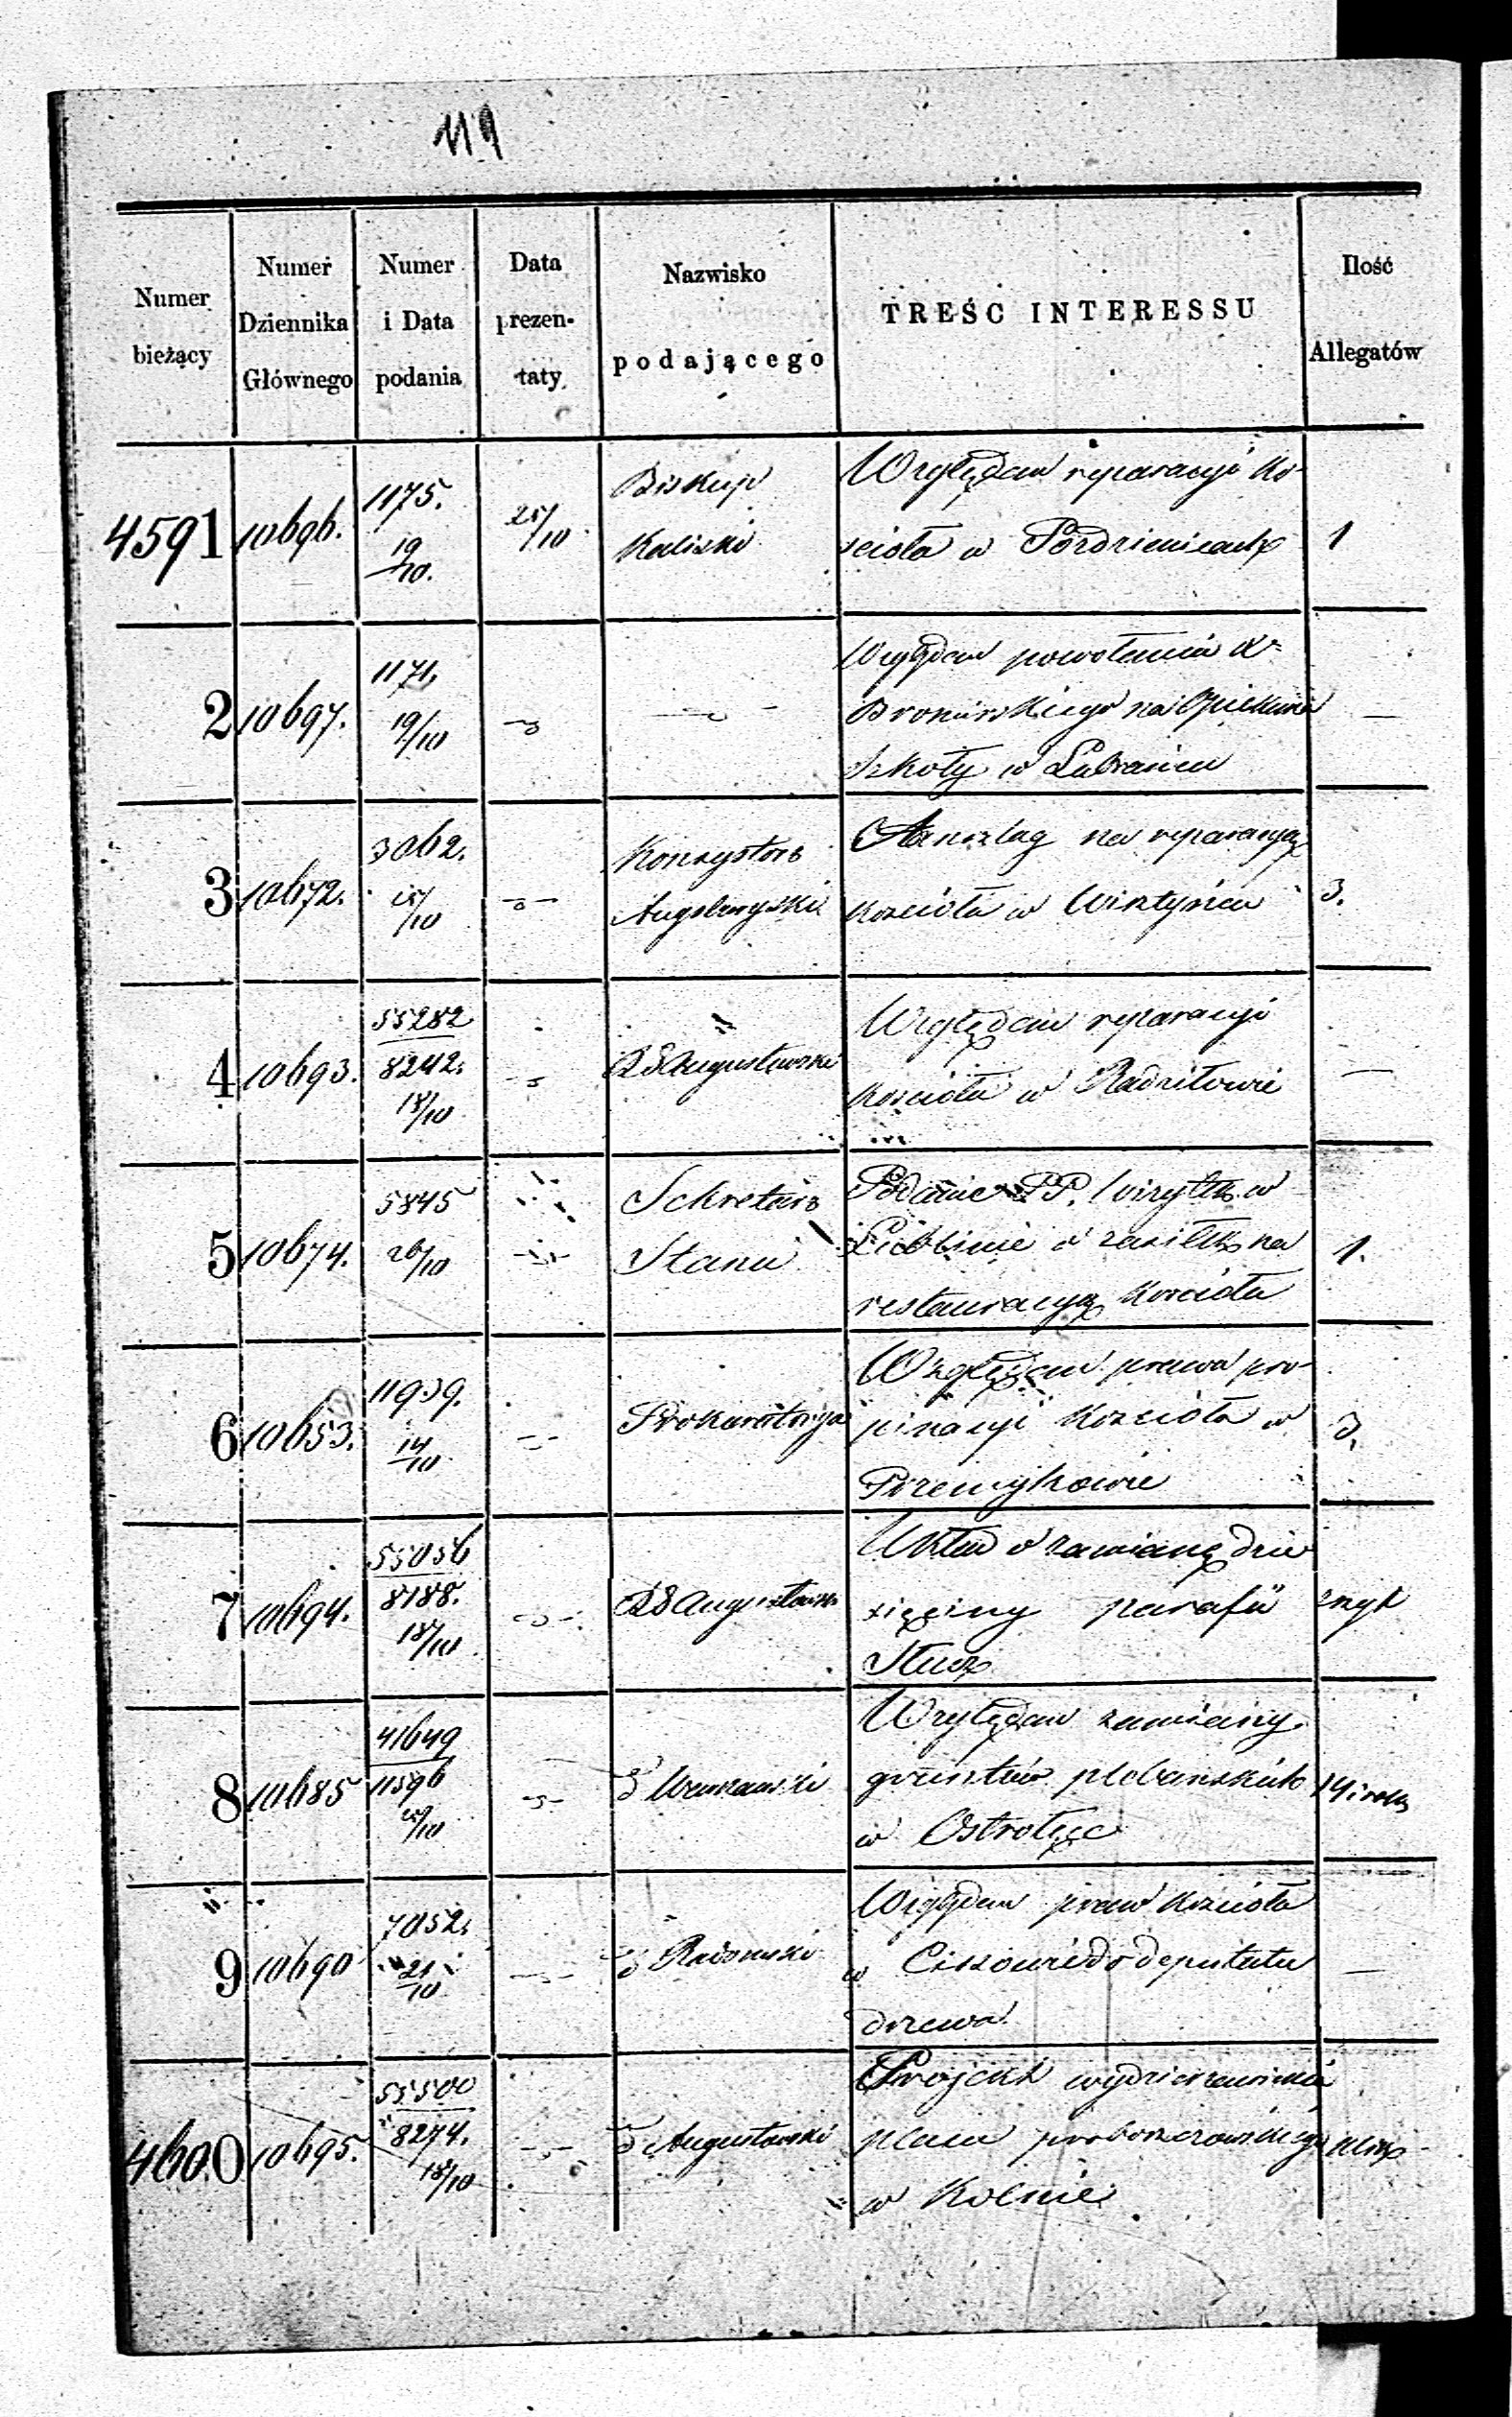 119
Numer bieżący
Numer Dziennika Głównego
Numer i Data podania
Data prezen- taty
Nazwisko podającego
TREŚC INTERESSU
Ilość Allegatów
4591
10696.
1175.
19/10.
25/10
Biskup
Kaliski
Względem reparacyi ko-
ścioła w Pozdzienicach
1
2
10697.
1171.
19/10
Względem powołania Xa
na Opiekuna
Szkoły w Lubrańcu
—
3
10672.
3062.
Konsystorz
Augustowski
Anszlag na reparacyą
kościoła w Wisztyńcu
3.
4
10693.
55282
8242.
18/10
RG Augustowski
Względem reparacyi
kościoła w Radziłowie
—
5
10674.
5845
26/10
Sekretarz
Stanu
Podanie PP. Wizytek w
Lublinie o zasiłek na
restauracyą kościoła
1.
6
10653.
11939.
14/10
Prokuratorya
Względem prawa pro-
pinacyi kościoła w
Przemykowie
3.
7
10694.
55056
8188.
18/10
RG Augustowski
Układ o zamianę dzie
sięciny parafii
8
10685
41649
11596
Warszawski
Względem zamiany
gruntów plebańskich
w Ostrołęce
9
10690
7052.
21/10
Radomski
Względem praw kościoła
w Cissowie do deputatu
drzewa
—
4600
10695.
55500
8274.
18/10
Augustowski
Projekt wydzierżawienia
placu proboszczowskiego
w Kolnie